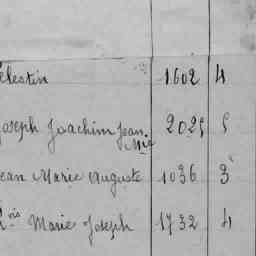 élestin 1602 4
Joseph Joachim Jean Mie 2025 5
ean Marie Auguste 1036 3
ois Marie Joseph 1732 4